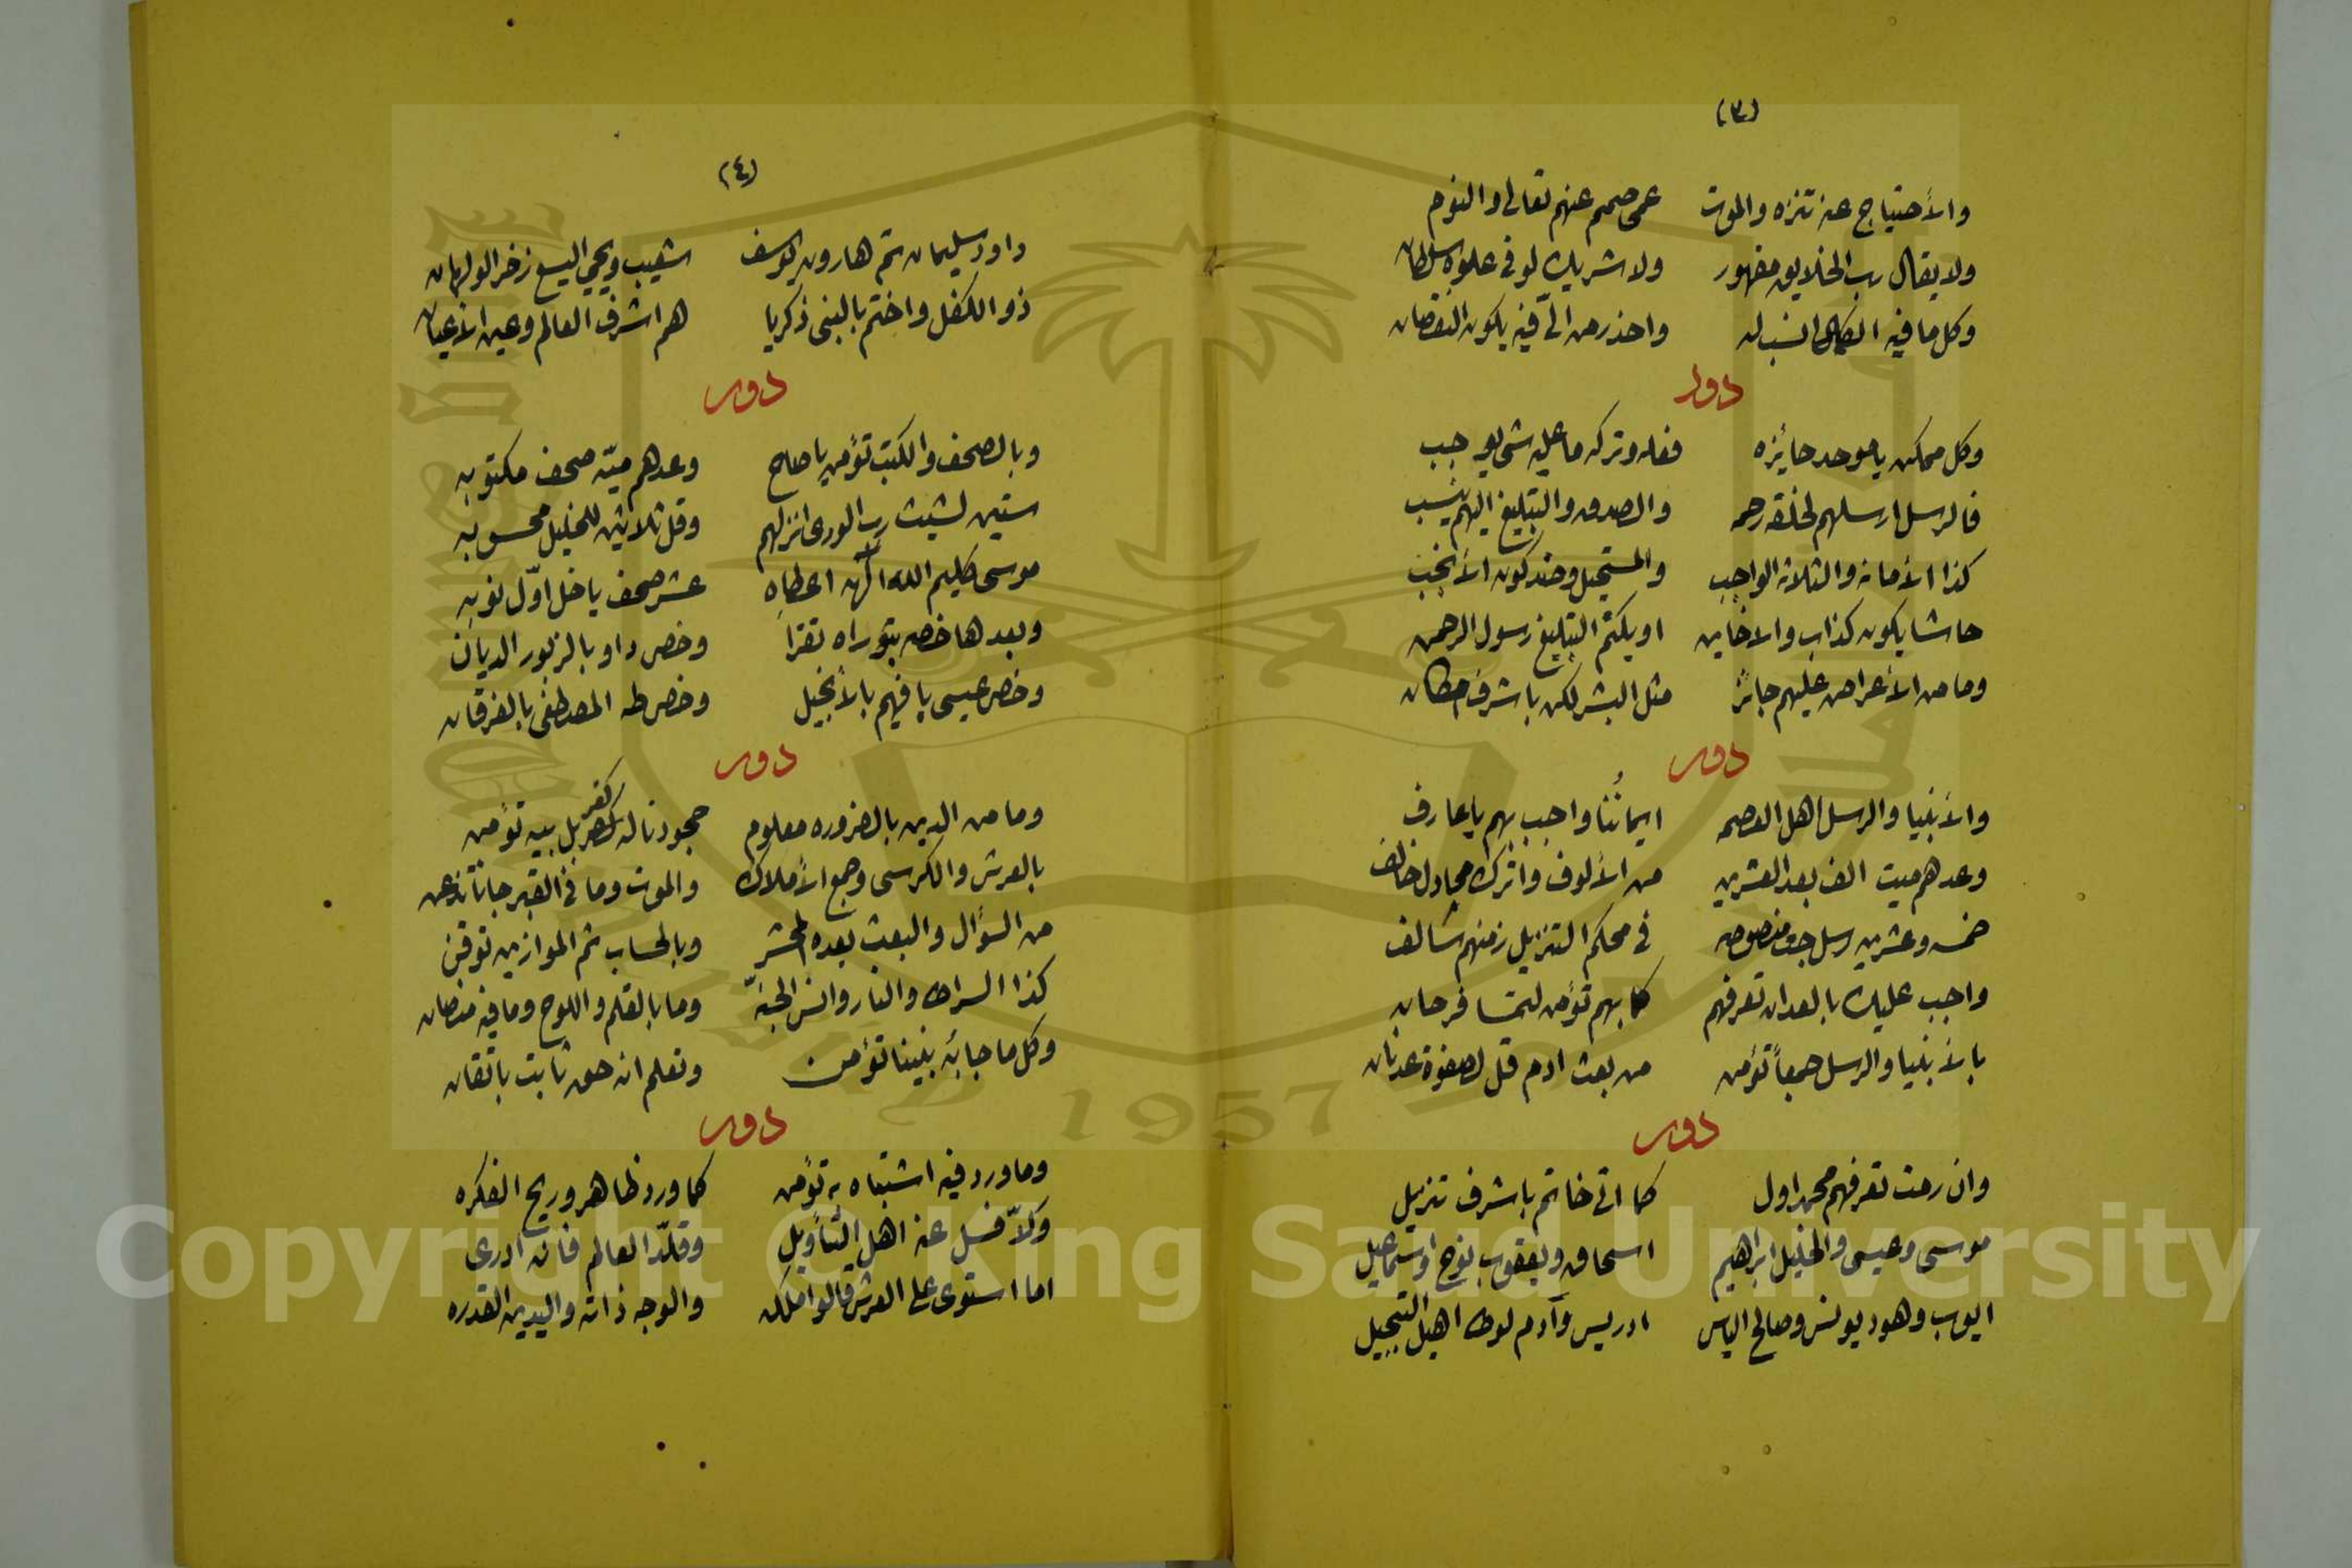 (٣)
والأحتياج عنه تنزه والموت عمى صمم عنهم تعالى والنوم
ولا يقال رب الخلايق مقهور ولا شريك لو في علوه سلطان
وكل ما فيه الكمال انسب له واحذر من الّي فيه يكون النقصان
دور
وكل ممكن يا موحد جايزه فعله وتركه ما عليه شي يوجب
فالرسل ارسلهم لخلقه رحمه والصدق والتبليغ اليهم ينسب
كذا الأمانه والثلاثة الواجب والمستحيل وضد كون الأنجب
حاشا يكون كذاب والا خاين او يكتم التبليغ رسول الرحمن
وما من الأعراض عليهم جائز مثل البشر لكن باشرف امكان
دور
والأنبيا والرسل اهل العصمه ايماننا واجب بهم يا عارف
وعدهم ميت الف بعد العشرين من الألوف واترك مجادل خالف
خمسه وعشرين رسل جت منصوصه في محكم التنزيل زمنهم سالف
واجب عليك بالعد ان تعرفهم كما بهم تؤمن ليتمسا فرحان
بالأنبيا والرسل جمعاً تؤمن من بعث ادم قل لصفوة عدنان
دور
وان رمت تعرفهم محمد اول كما اتى خاتم باشرف تنزيل
موسى وعيسى والخليل ابراهيم اسحاق ويعقوب نوح واسماعيل
ايوب وهود يونس وصالح الياس ادريس وآدم لوط اهيل التبجيل
(٤)
داود سليمان ثم هارون يوسف شعيب ويحيى اليسع زخر الولهان
ذو الكفل واختم بالنبى ذكريا هم اشرف العالم وعين الأعيان
دور
وبالصحف والكتب تؤمن يا صاح وعدهم ميّه صحف مكتوبه
ستين لشيث رب الورى انزلهم وقل ثلاثين للخليل محسوبه
موسى كليم الله الّهه اعطاه عشر صحف يا خل اوّل نوبه
وبعدها خصه بتوراه تقرا وخص داود بالزبور الديان
وخص عيسى يا فهيم بالأنجيل وخص طه المصطفى بالفرقان
دور
وما من الدين بالضروره معلوم جحودنا له كفر بل بيه تؤمن
بالعرش والكرسى وجمع الأملاك والموت وما في القبر جانا تذعن
من السؤال والبعث بعده المحشر وبالحساب ثم الموازين توقن
كذا السراط والنار وانس الجنّه وما بالقلم واللوح وما فيه منصان
وكل ما جا به نبينا تؤمن وتعلم انه حق ثابت باتقان
دور
وما ورد فيه اشتباه به تؤمن كما ورد ظاهر وريح الفكره
وكلاّ فسل عنه اهل التأويل وقلّد العالم فانه ادرى
اما استوى على العرش قالوا ملكه والوجه ذاته واليدين القدره
Copyright © King Saud University
1957